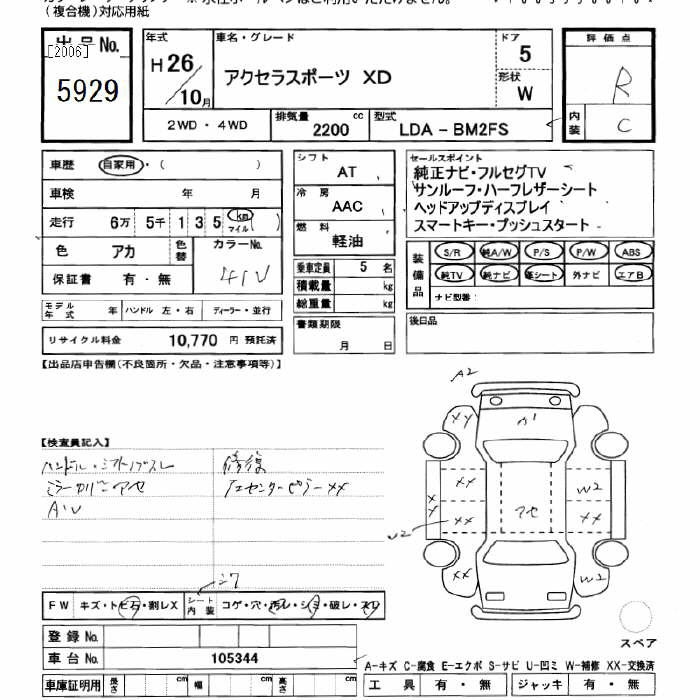 (複合機)対応用紙
出品No.
[2006]
5929
年式
H26/10月
車名・グレード
アクセラスポーツ XD
ドア
5
形状
W
評価点
R
内装
C
2WD・4WD
排気量
2200 cc
型式
LDA - BM2FS
車歴 自家用・( )
車検 年 月
走行 6万 5千 1 3 5 km マイル ( )
色 アカ 色替 カラーNo.
41V
保証書 有・無
モデル年式 年 ハンドル 左・右 ディーラー・並行
リサイクル料金 10,770 円 預託済
シフト
AT
冷房
AAC
燃料
軽油
乗車定員 5 名
積載量 kg
総重量 kg
書類期限
月 日
セールスポイント
純正ナビ・フルセグTV
サンルーフ・ハーフレザーシート
ヘッドアップディスプレイ
スマートキー・プッシュスタート
装備品
S/R 純A/W P/S P/W ABS
純TV 純ナビ 革シート 外ナビ エアB
ナビ型番:
後日品
【出品店申告欄(不良箇所・欠品・注意事項等)】
【検査員記入】
ハンドル・シフトノブスレ
ミラーカバーアセ
A・U
修復
左センターピラーXX
A2
XX
ガ
XX
XX
XX
U2
アセ
W2
XX
XX
W2
FW キズ・トビ石・割レX シート内装 コゲ・穴・汚レ・シミ・破レ・スレ
シワ
登録No.
車台No. 105344
車庫証明用 長さ cm 幅 cm 高さ cm
スペア
A-キズ C-腐食 E-エクボ S-サビ U-凹ミ W-補修 XX-交換済
工具 有・無 ジャッキ 有・無